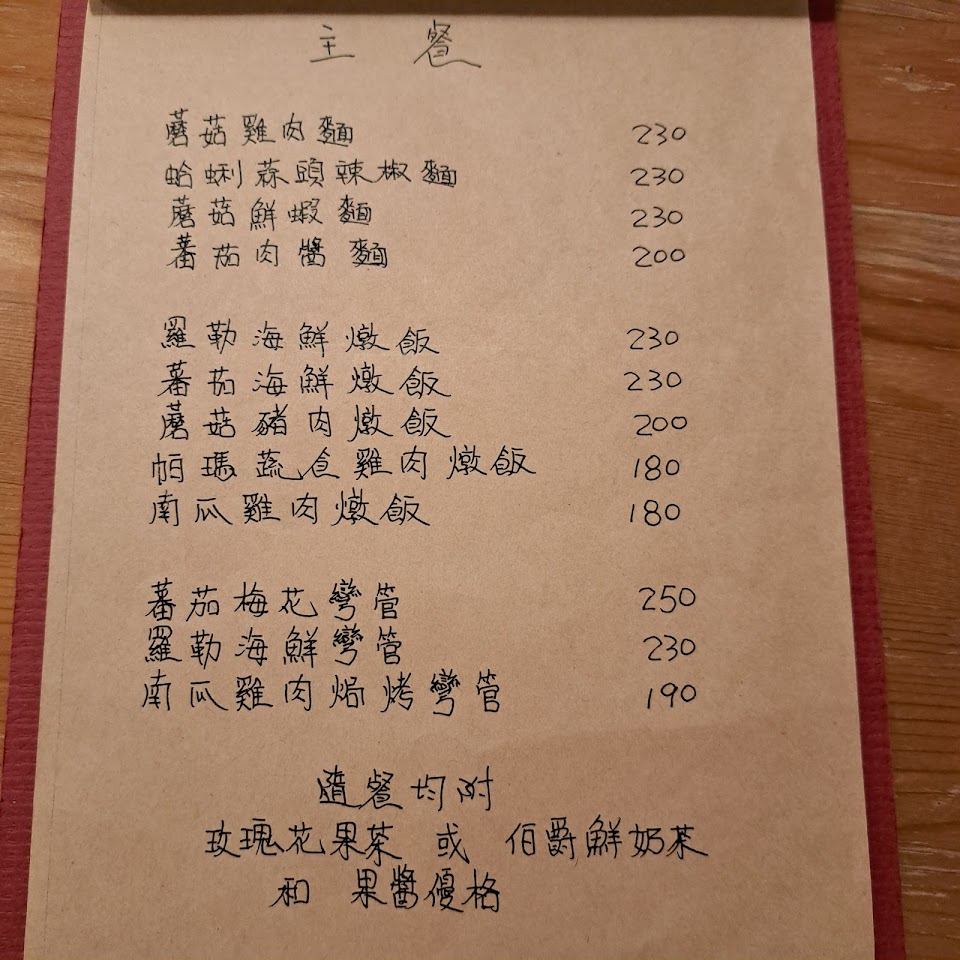 主 餐
蘑菇雞肉麵 230
蛤蜊蒜頭辣椒麵 230
蘑菇鮮蝦麵 230
蕃茄肉醬麵 200
羅勒海鮮燉飯 230
蕃茄海鮮燉飯 230
蘑菇豬肉燉飯 200
帕瑪蔬食雞肉燉飯 180
南瓜雞肉燉飯 180
蕃茄梅花彎管 250
羅勒海鮮彎管 230
南瓜雞肉焗烤彎管 190
隨餐均附
玫瑰花果茶 或 伯爵鮮奶茶
和 果醬優格